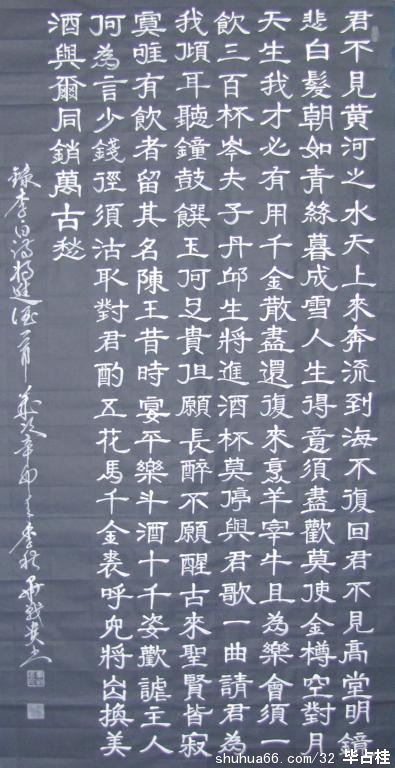 君不見黄河之水天上來奔流到海不復回君不見高堂明鏡
悲白髮朝如青絲暮成雪人生得意須盡歡莫使金樽空對月
天生我才必有用千金散盡還復來烹羊宰牛且為樂會須一
飲三百杯岑夫子丹邱生將進酒杯莫停與君歌一曲請君為
我傾耳聽鐘鼓饌玉何足貴但願長醉不願醒古來聖賢皆寂
寞唯有飲者留其名陳王昔時宴平樂斗酒十千姿歡謔主人
何為言少錢徑須沽取對君酌五花馬千金裘呼兒將出換美
酒與爾同銷萬古愁
錄李白詩將進酒一首
shuhua66.com/32 毕占桂